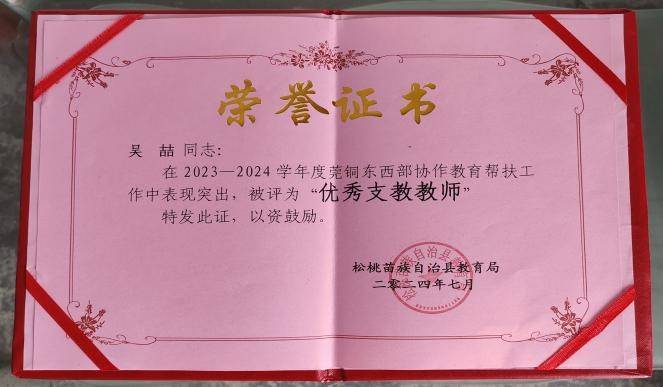 荣誉证书
吴喆同志：
在2023—2024学年度莞铜东西部协作教育帮扶工
作中表现突出，被评为“优秀支教教师”
特发此证，以资鼓励。
松桃苗族自治县教育局
二零二四年七月